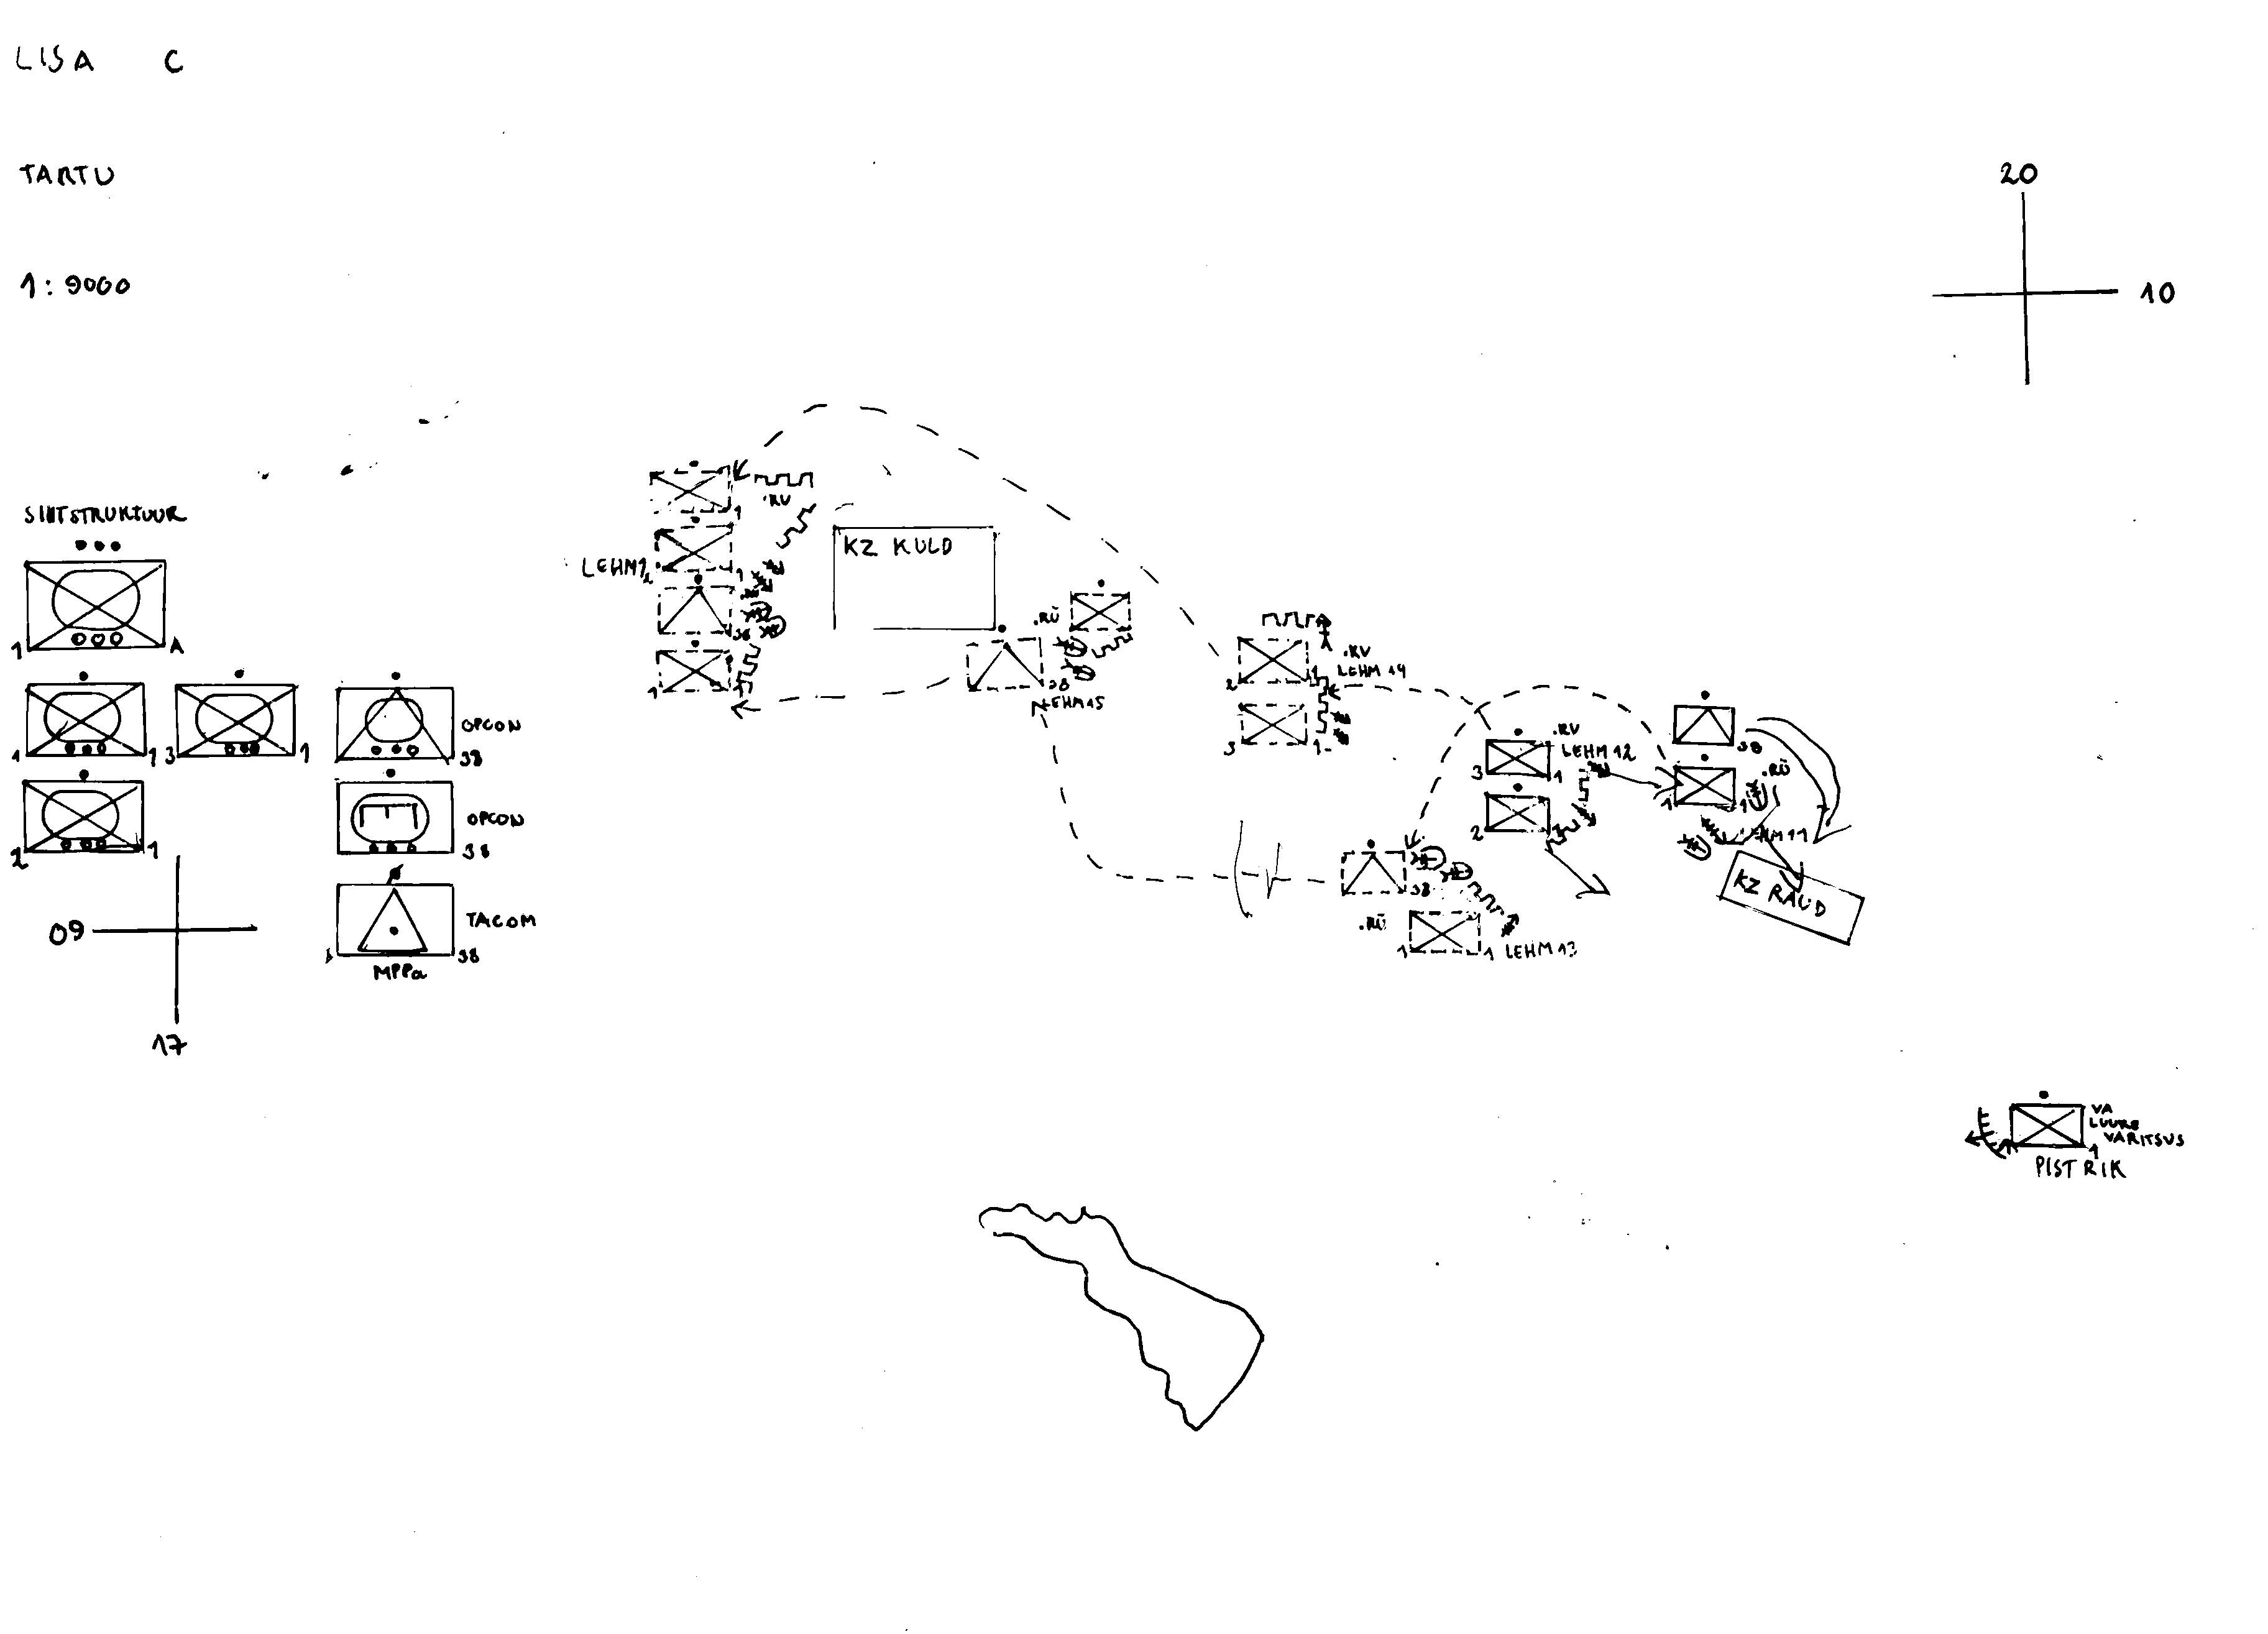 LISA C
TARTU
1 : 9000
20
10
SIHTSTRUKTUUR
1 A
1 1
3 1
OPCON
38
2 1
OPCON
38
TACOM
38
MPPa
09
17
1
.RV
1
LEHM
38
1
KZ KULD
.RÜ
38
LEHM 15
2 1
.RV
LEHM 14
3 1
3 1
.RV
LEHM 12
2
38
1 1
.RÜ
LEHM 11
KZ RAUD
38
.RÜ
1 1
LEHM 13
VA
LUURE
VARITSUS
1
PISTRIK